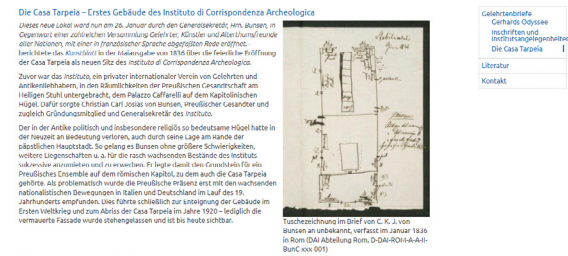 Die Casa Tarpeia – Erstes Gebäude des Instituto di Corrispondenza Archeologica
Dieses neue Lokal ward nun am 26. Januar durch den Generalsekretär, Hrn. Bunsen, in
Gegenwart einer zahlreichen Versammlung Gelehrter, Künstler und Alterthumsfreunde
aller Nationen, mit einer in französischer Sprache abgefaßten Rede eröffnet.
berichtete das Kunstblatt in der Maiausgabe von 1836 über die feierliche Eröffnung
der Casa Tarpeia als neuen Sitz des Instituto di Corrispondenza Archeologica.
Zuvor war das Instituto, ein privater internationaler Verein von Gelehrten und
Antikenliebhabern, in den Räumlichkeiten der Preußischen Gesandtschaft am
Heiligen Stuhl untergebracht, dem Palazzo Caffarelli auf dem Kapitolinischen
Hügel. Dafür sorgte Christian Carl Josias von Bunsen, Preußischer Gesandter und
zugleich Gründungsmitglied und Generalsekretär des Instituto.
Der in der Antike politisch und insbesondere religiös so bedeutsame Hügel hatte in
der Neuzeit an Bedeutung verloren, auch durch seine Lage am Rande der
päpstlichen Hauptstadt. So gelang es Bunsen ohne größere Schwierigkeiten,
weitere Liegenschaften u. a. für die rasch wachsenden Bestände des Instituts
sukzessive anzumieten und zu erwerben. Er legte damit den Grundstein für ein
Preußisches Ensemble auf dem römischen Kapitol, zu dem auch die Casa Tarpeia
gehörte. Als problematisch wurde die Preußische Präsenz erst mit den wachsenden
nationalistischen Bewegungen in Italien und Deutschland im Lauf des 19.
Jahrhunderts empfunden. Dies führte schließlich zur Enteignung der Gebäude im
Ersten Weltkrieg und zum Abriss der Casa Tarpeia im Jahre 1920 – lediglich die
vermauerte Fassade wurde stehengelassen und ist bis heute sichtbar.
Tuschezeichnung im Brief von C. K. J. von
Bunsen an unbekannt, verfasst im Januar 1836
in Rom (DAI Abteilung Rom, D-DAI-ROM-A-A-II-
BunC xxx 001)
Gelehrtenbriefe
Gerhards Odyssee
Inschriften und
Institutsangelegenheiten
Die Casa Tarpeia
Literatur
Kontakt